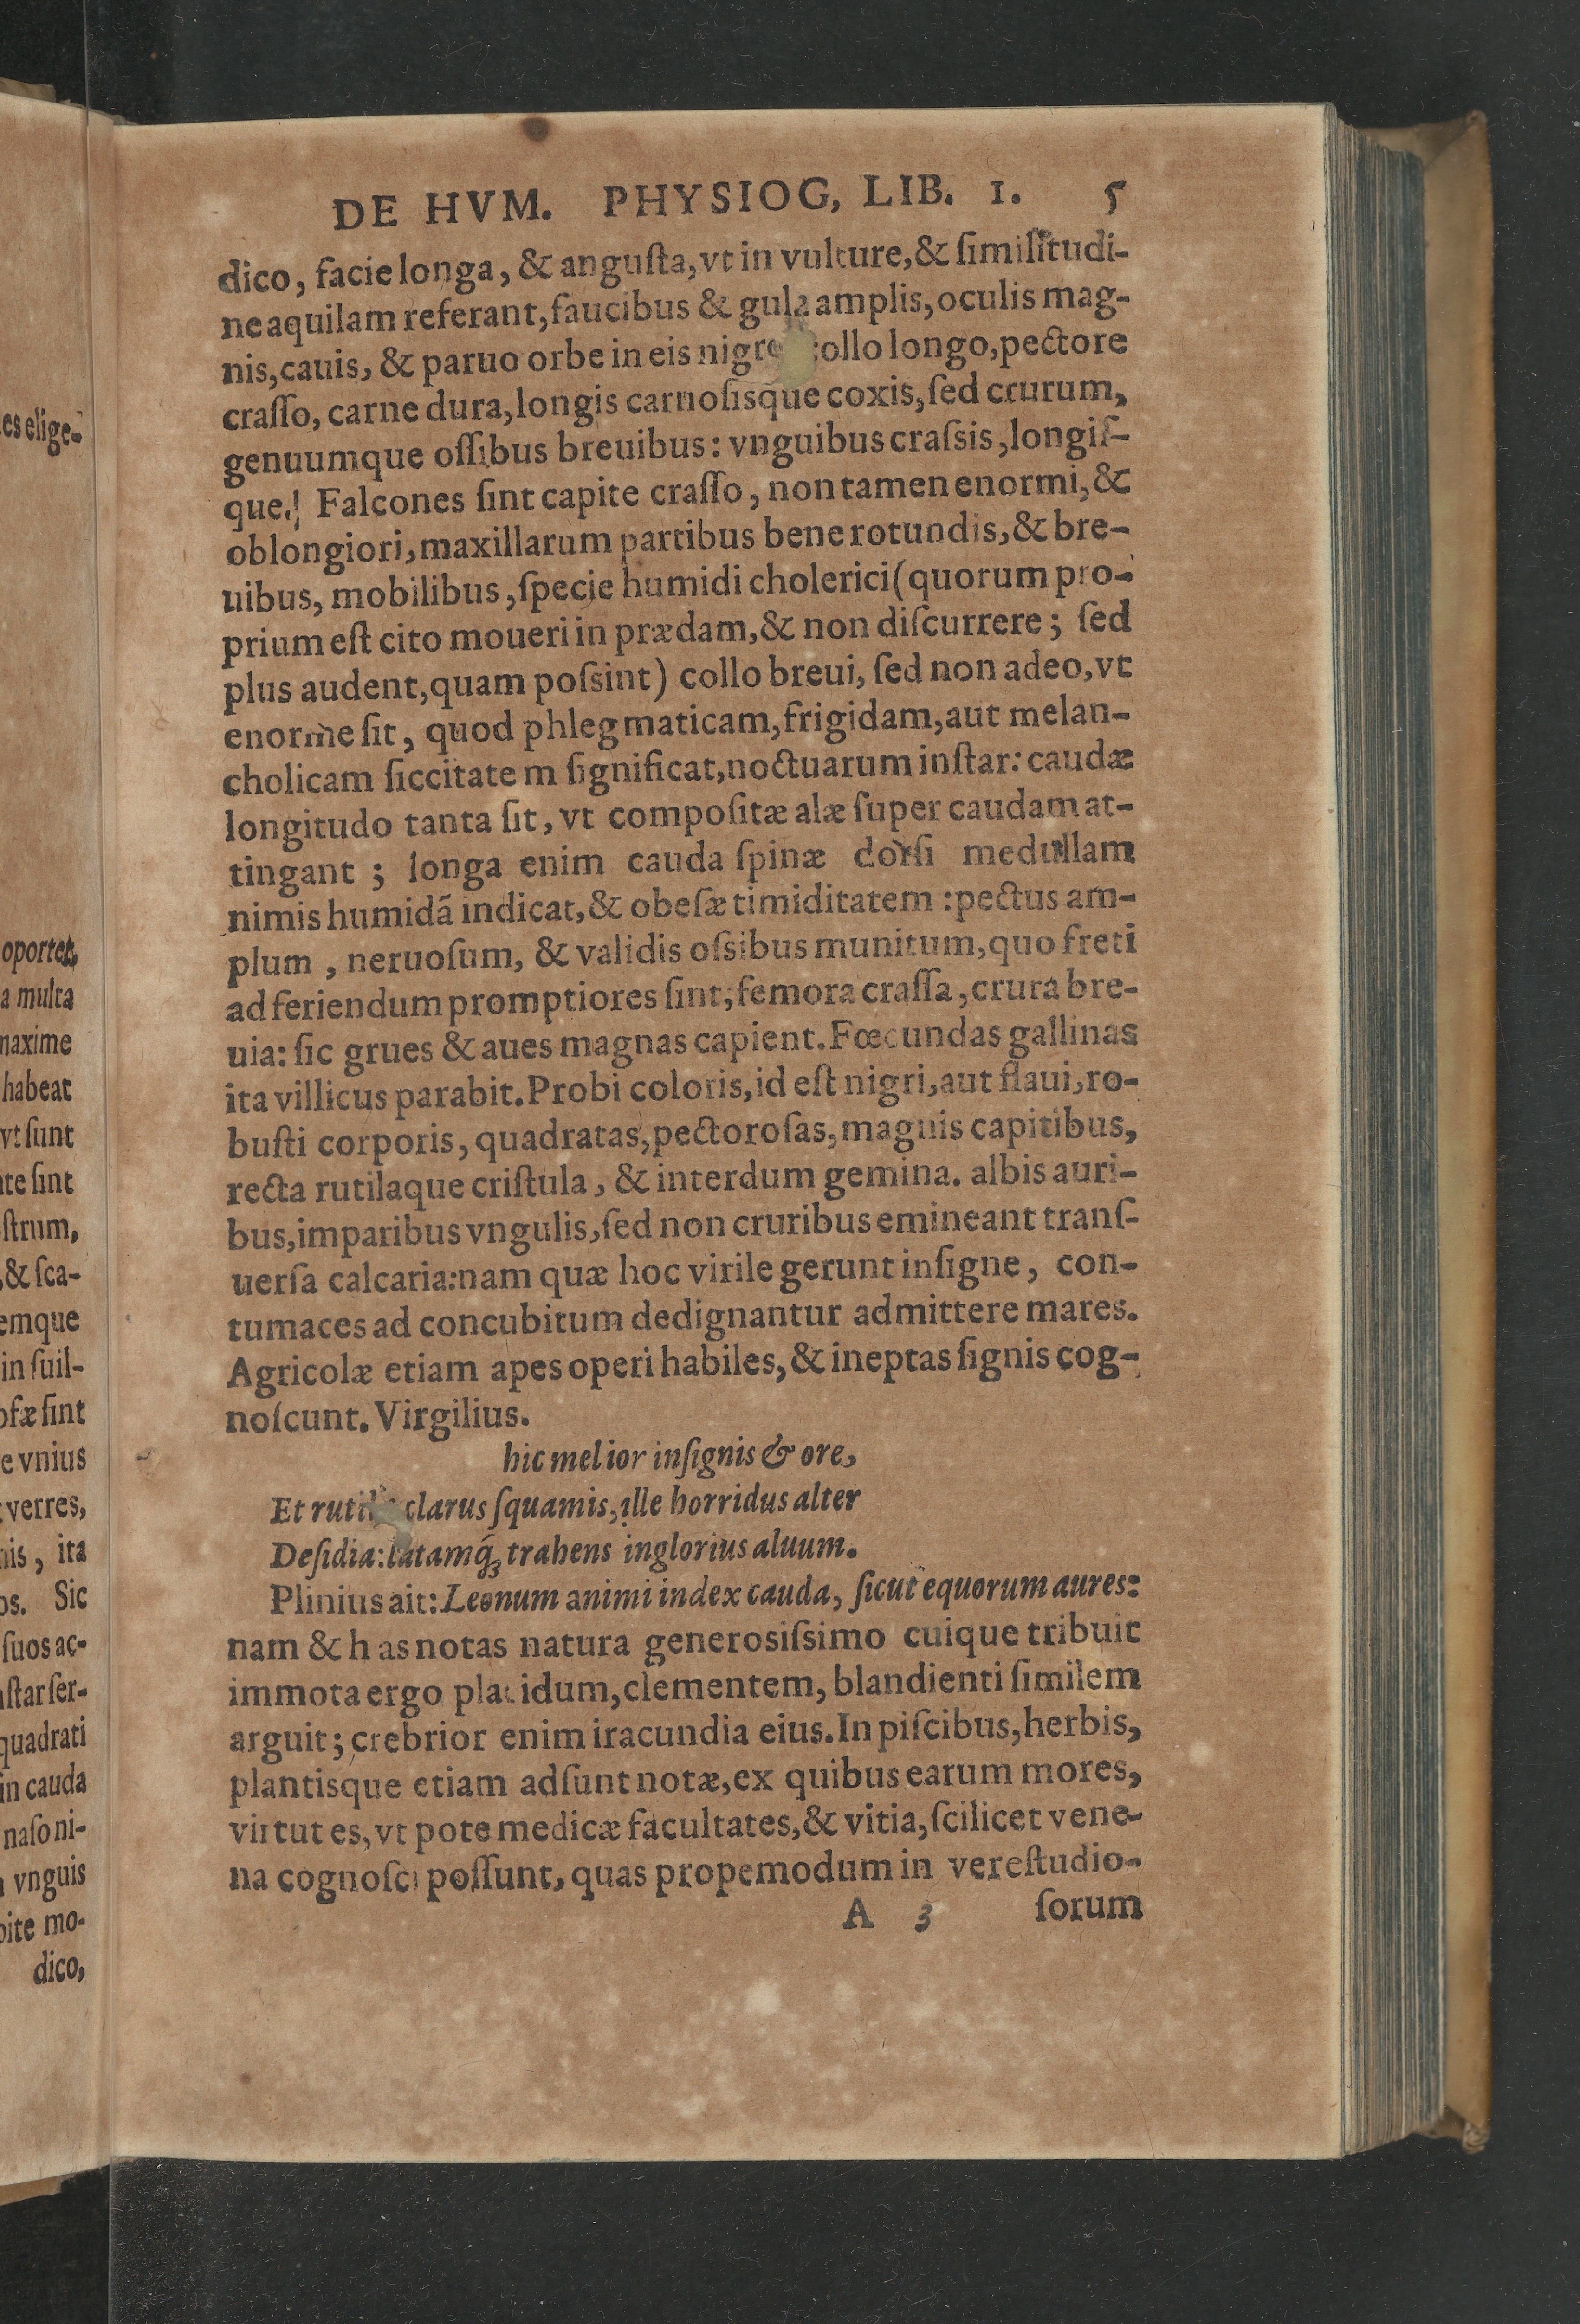 DE HVM. PHYSIOG, LIB. 1. 5
dico, facie longa, & anguſta, vt in vulture, & ſimilitudi-
ne aquilam referant, faucibus & gula amplis, oculis mag-
nis, cauis, & paruo orbe in eis nigro collo longo, pectore
craſſo, carne dura, longis carnoſisque coxis, ſed crurum,
genuumque oſſibus breuibus: vnguibus craſsis, longiſ-
que.! Falcones ſint capite craſſo, non tamen enormi, &
oblongiori, maxillarum partibus bene rotundis, & bre-
uibus, mobilibus, ſpecie humidi cholerici (quorum pro-
prium eſt cito moueri in prædam, & non diſcurrere; ſed
plus audent, quam poſsint) collo breui, ſed non adeo, vt
enorme ſit, quod phlegmaticam, frigidam, aut melan-
cholicam ſiccitate m ſignificat, noctuarum inſtar: caudæ
longitudo tanta ſit, vt compoſitæ alæ ſuper caudam at-
tingant ; longa enim cauda ſpinæ dorſi medullam
nimis humidã indicat, & obeſæ timiditatem : pectus am-
plum , neruoſum, & validis oſsibus munitum, quo freti
ad feriendum promptiores ſint; femora craſſa, crura bre-
uia: ſic grues & aues magnas capient. Fœcundas gallinas
ita villicus parabit. Probi coloris, id eſt nigri, aut flaui, ro-
buſti corporis, quadratas, pectoroſas, magnis capitibus,
recta rutilaque criſtula, & interdum gemina. albis auri-
bus, imparibus vngulis, ſed non cruribus emineant tranſ-
uerſa calcaria: nam quæ hoc virile gerunt inſigne, con-
tumaces ad concubitum dedignantur admittere mares.
Agricolæ etiam apes operi habiles, & ineptas ſignis cog-
noſcunt. Virgilius.
hic melior inſignis & ore,
Et rutilis clarus ſquamis, ille horridus alter
Deſidia: latamq́; trahens inglorius aluum.
Plinius ait: Leonum animi index cauda, ſicut equorum aures:
nam & h as notas natura generosiſsimo cuique tribuit
immota ergo placidum, clementem, blandienti ſimilem
arguit; crebrior enim iracundia eius. In piſcibus, herbis,
plantisque etiam adſunt notæ, ex quibus earum mores,
virtut es, vt pote medicæ facultates, & vitia, ſcilicet vene-
na cognoſci poſſunt, quas propemodum in vere ſtudio-
A 3 ſorum
es elige-
oportet,
a multa
maxime
habeat
vt ſunt
te ſint
ſtrum,
, & ſca-
emque
in ſuil-
oſæ ſint
e vnius
verres,
nis, ita
os. Sic
ſuos ac-
ſtar ſer-
quadrati
in cauda
naſo ni-
vnguis
pite mo-
dico,